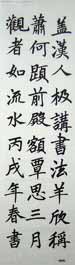 盖漢人极講書法羊欣稱
蕭何題前殿額覃思三月
觀者如流水丙戌年春書